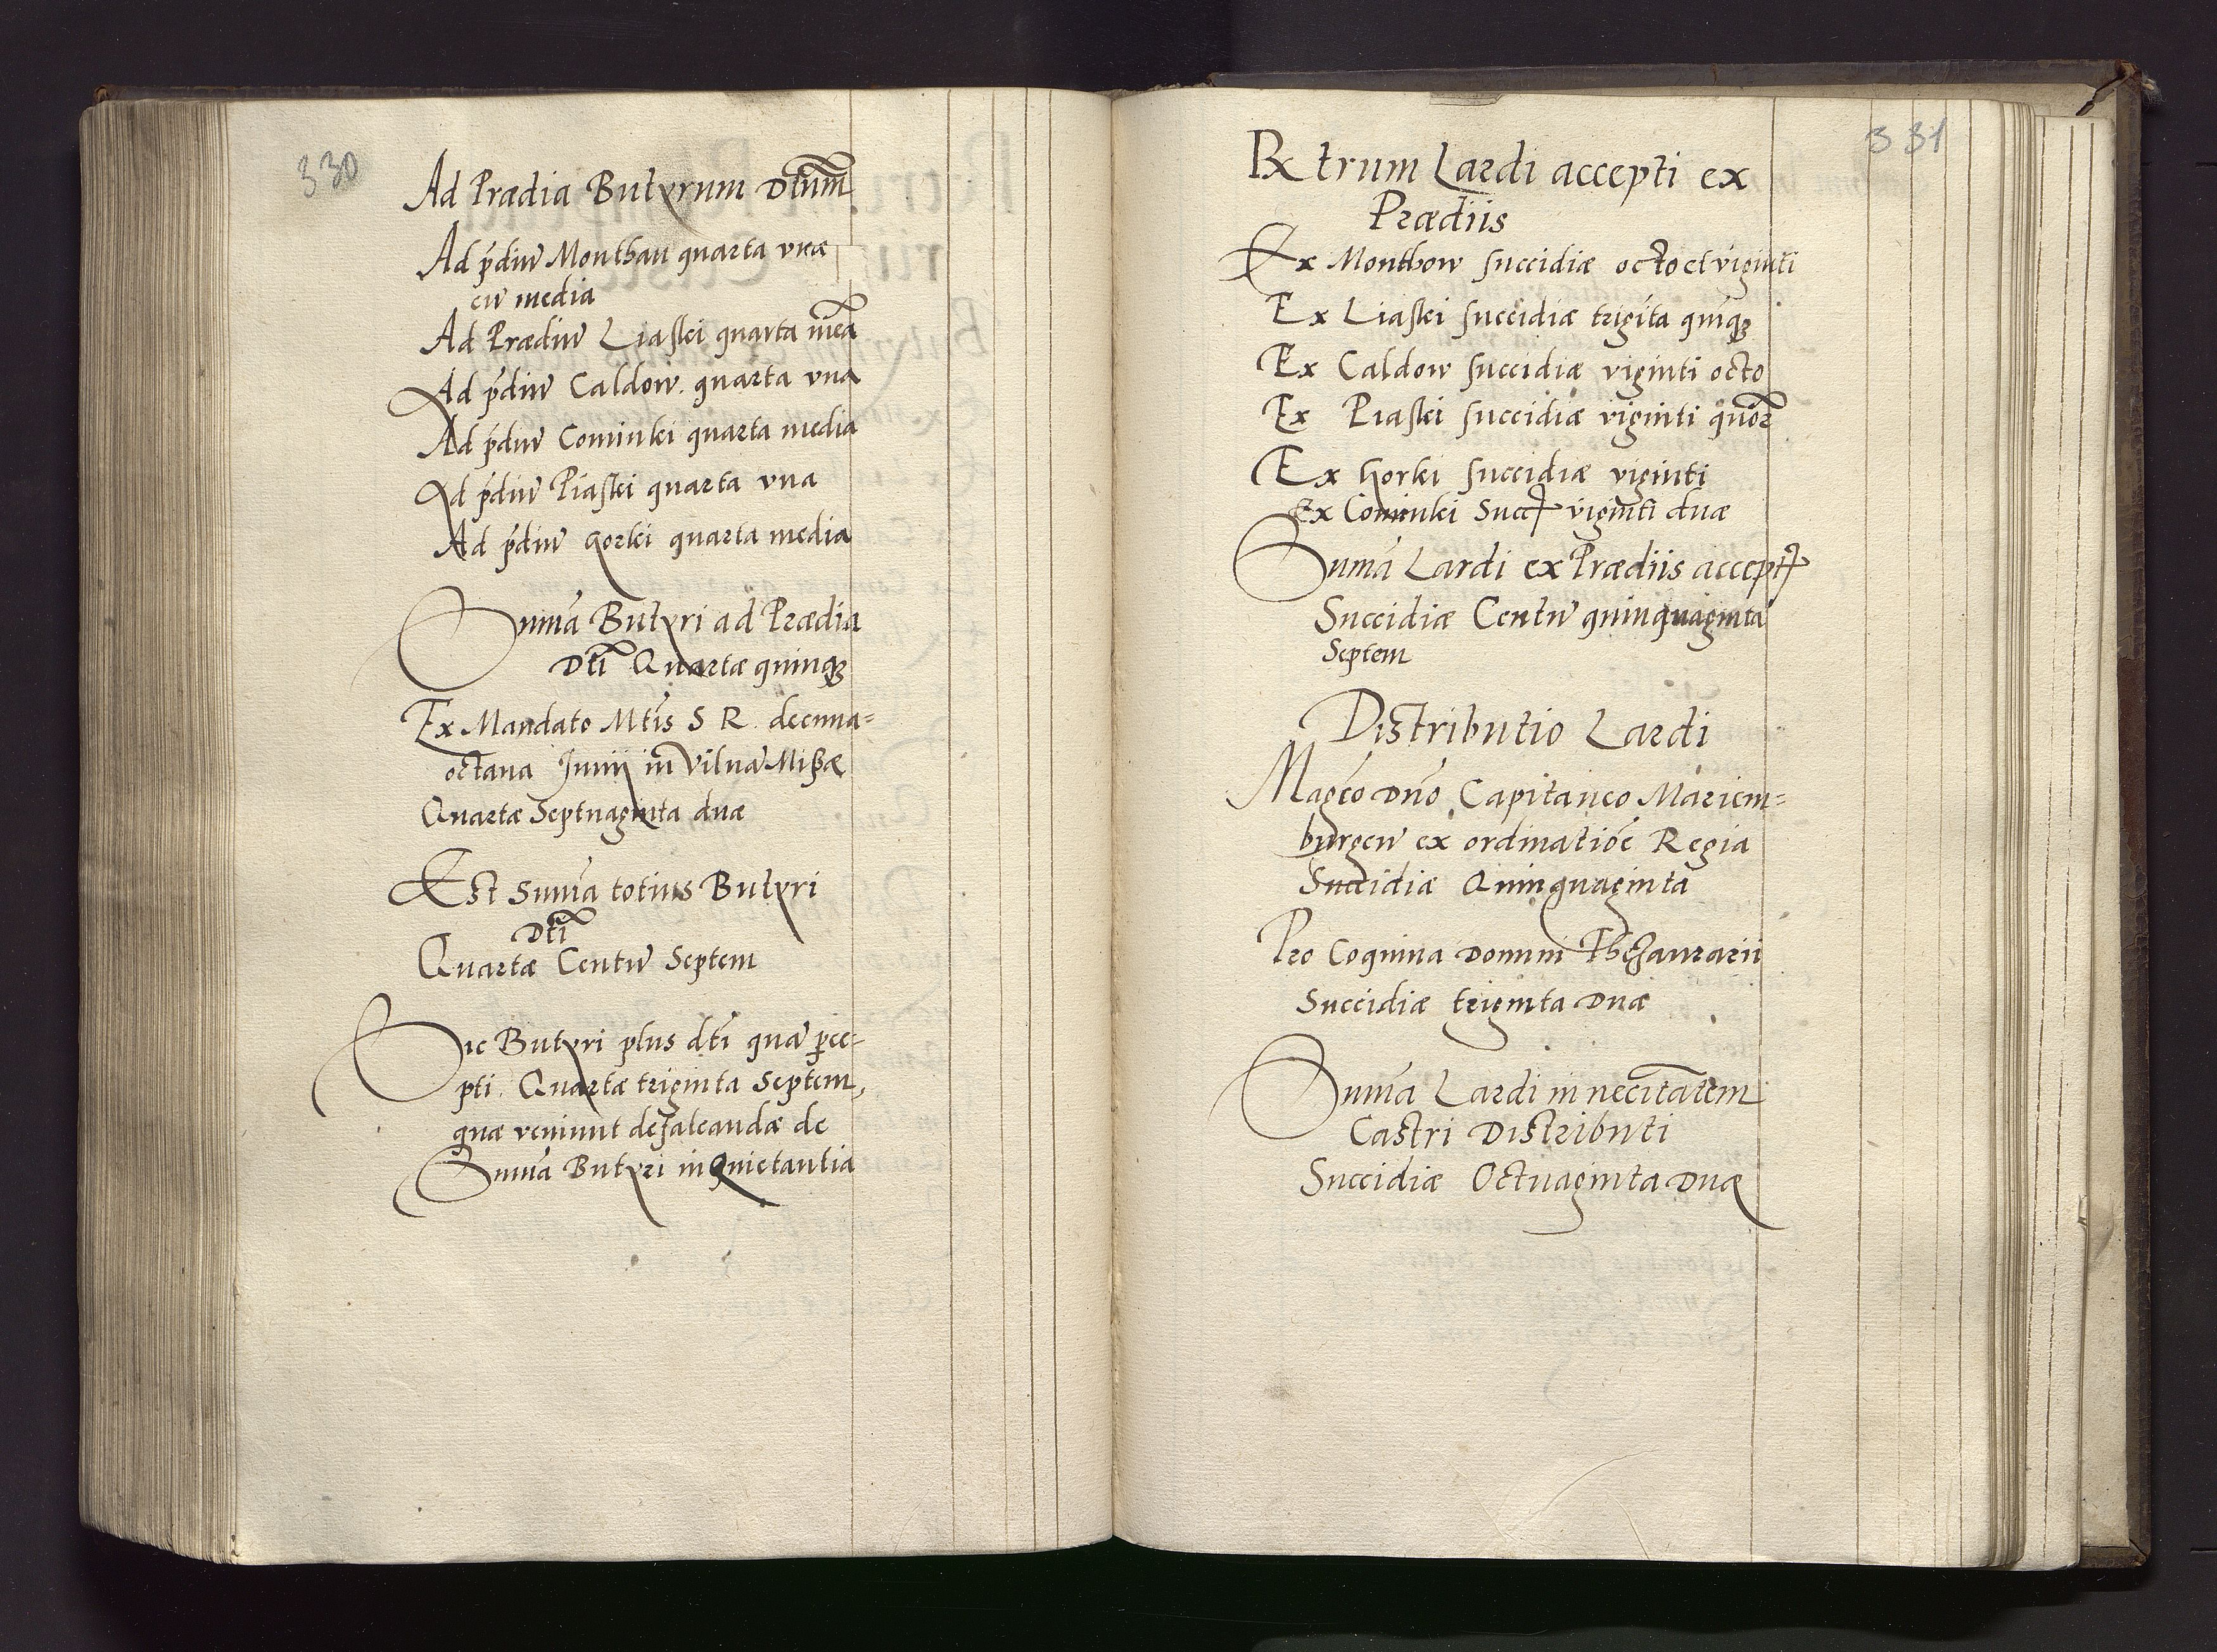 330
Ad Prædia Butyrum Dtum̃
Ad p̃diũ Monthau quarta vna
cũ media
Ad Prædiũ Liaski quarta mẽa
Ad p̃diũ Caldow. quarta vna
Ad p̃diũ Cominki quarta media
Ad p̃diũ Piaski quarta vna
Ad p̃diũ Gorki quarta media
Sum̃a Butyri ad Prædia
Dti Quartæ quinq3
Ex Mandato Mtis S R. decima=
octana Junij in Vilnã Missæ
Quartæ Septuaginta duæ
Est Sum̃a totius Butyri
Dti
Quartæ Centũ Septem
Sic Butyri plus dti quã perce=
pti. Quartæ triginta Septem,
quæ veniunt defalcandæ de
Sum̃a Butyri in Quietantia
331
Rx trum Lardi accepti ex
Prædiis
Ex Monthow succidiæ octo et viginti
Ex Liaski succidiæ trigĩta quĩq3
Ex Caldow succidiæ viginti octo
Ex Piaski succidiæ viginti quõr
Ex Horki succidiæ viginti
Ex Cominki Succ viginti duæ
Sum̃a Lardi ex Prædiis accept
Succidiæ Centũ quinquaginta
Septem
Distributio Lardi
Magco Dño Capitaneo Mariem=
burgeñ ex ordinatiõe Regia
Succidiæ Quinquaginta
Pro Coquina Domini Thezaurarii
Succidiæ triginta Duæ
Sum̃a Lardi in necitãtem
Castri Distributi
Succidiæ Octuaginta Duæ